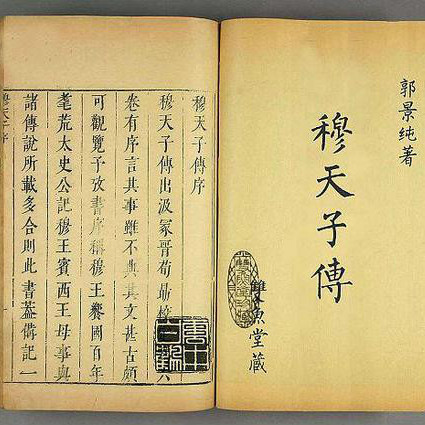 郭景纯著
穆天子傳
雙魚堂藏
穆天子傳序
穆天子傳出汲冢晉荀勗校六
卷有序言其事雖不典其文甚古頗
可觀覽予攷書序稱穆王饗國百年
耄荒太史公記穆王賓西王母事與
諸傳說所載多合則此書葢備記一
穆天子序